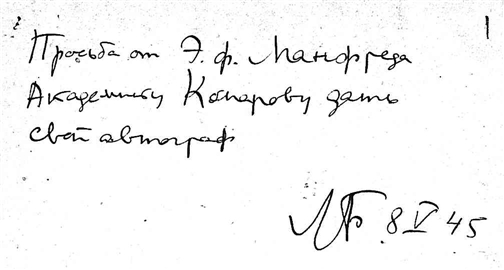 Просьба от Э. Ф. Манфреда
Академику Комарову дать
свой автограф
8 V 45